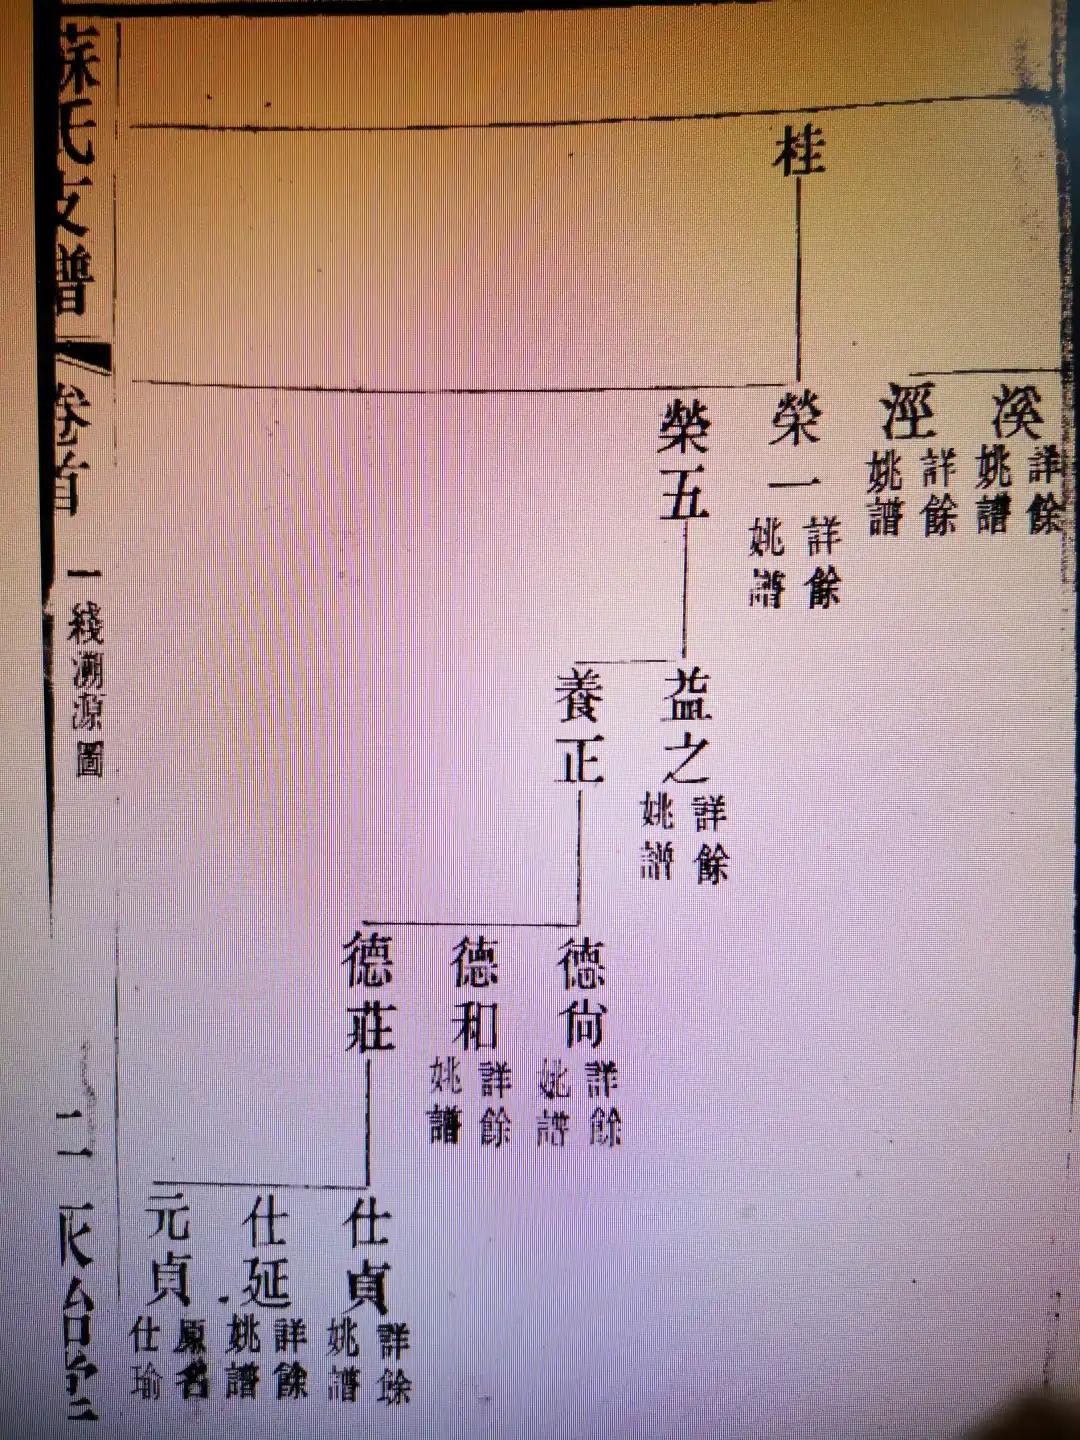 溪
詳餘
姚譜
涇
詳餘
姚譜
桂
榮一
詳餘
姚譜
榮五
益之
詳餘
姚譜
養正
德尙
詳餘
姚譜
德和
詳餘
姚譜
德莊
仕貞
詳餘
姚譜
仕延
詳餘
姚譜
元貞
原名
仕瑜
蘇氏支譜
卷首
一綫溯源圖
二